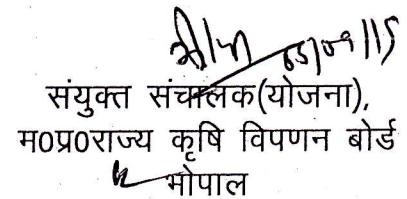 संयुक्त संचालक(योजना),
म0प्र0राज्य कृषि विपणन बोर्ड
भोपाल